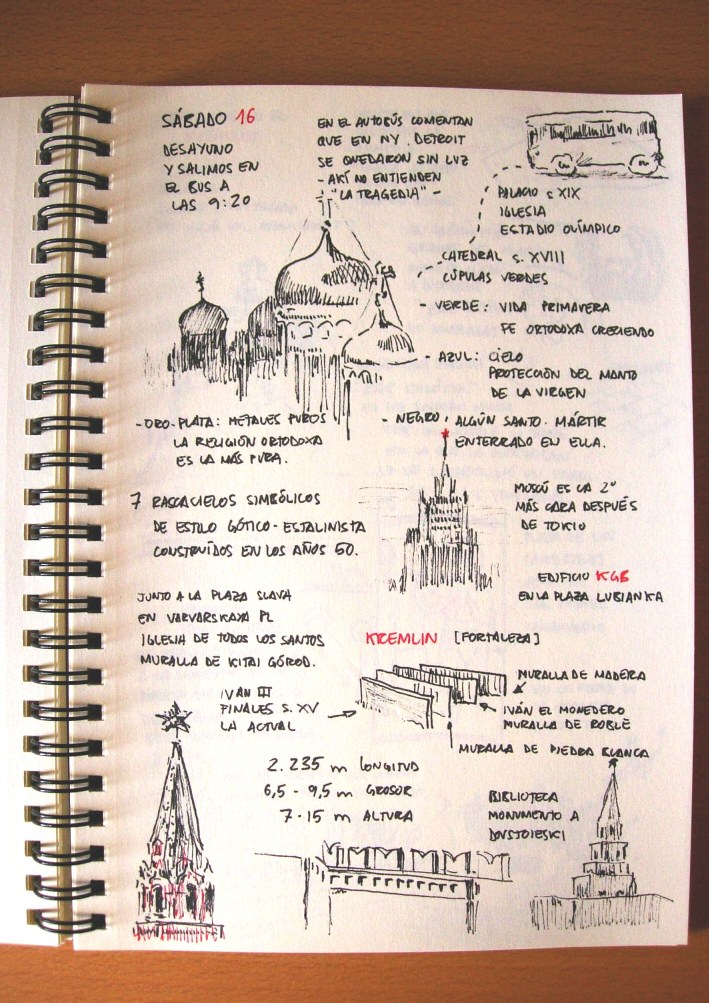 SÁBADO 16
DESAYUNO
Y SALIMOS EN
EL BUS A
LAS 9:20
EN EL AUTOBÚS COMENTAN
QUE EN NY, DETROIT
SE QUEDARON SIN LUZ
- AKÍ NO ENTIENDEN
"LA TRAGEDIA" -
PALACIO S XIX
IGLESIA
ESTADIO OLÍMPICO
CATEDRAL S. XVIII
CÚPULAS VERDES
- VERDE: VIDA PRIMAVERA
FE ORTODOXA CRECIENDO
- AZUL: CIELO
PROTECCIÓN DEL MANTO
DE LA VIRGEN
- NEGRO: ALGÚN SANTO. MÁRTIR
ENTERRADO EN ELLA.
- ORO-PLATA: METALES PUROS
LA RELIGIÓN ORTODOXA
ES LA MÁS PURA.
7 RASCACIELOS SIMBÓLICOS
DE ESTILO GÓTICO-ESTALINISTA
CONSTRUÍDOS EN LOS AÑOS 50.
MOSCÚ ES LA 2ª
MÁS CARA DESPUÉS
DE TOKIO
EDIFICIO KGB
EN LA PLAZA LUBIANKA
JUNTO A LA PLAZA SLAVA
EN VARVARSKAYA PL
IGLESIA DE TODOS LOS SANTOS
MURALLA DE KITAI GÓROD.
KREMLIN [FORTALEZA]
MURALLA DE MADERA
IVÁN EL MONEDERO
MURALLA DE ROBLE
MURALLA DE PIEDRA BLANCA
IVÁN III
FINALES S. XV
LA ACTUAL
2.235 m LONGITUD
6,5 - 9,5 m GROSOR
7-15 m ALTURA
BIBLIOTECA
MONUMENTO A
DOSTOIESKI